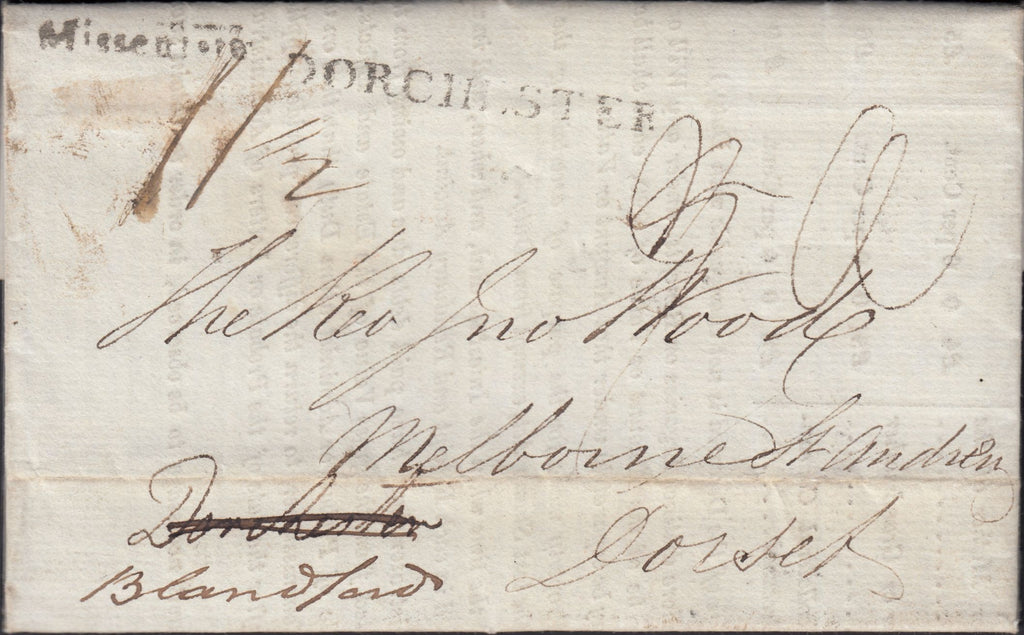 Missent to
DORCHESTER
11
1/2
The Rev Jno Wood
Melborne St Andrew
Dorset
Dorchester
Blandford